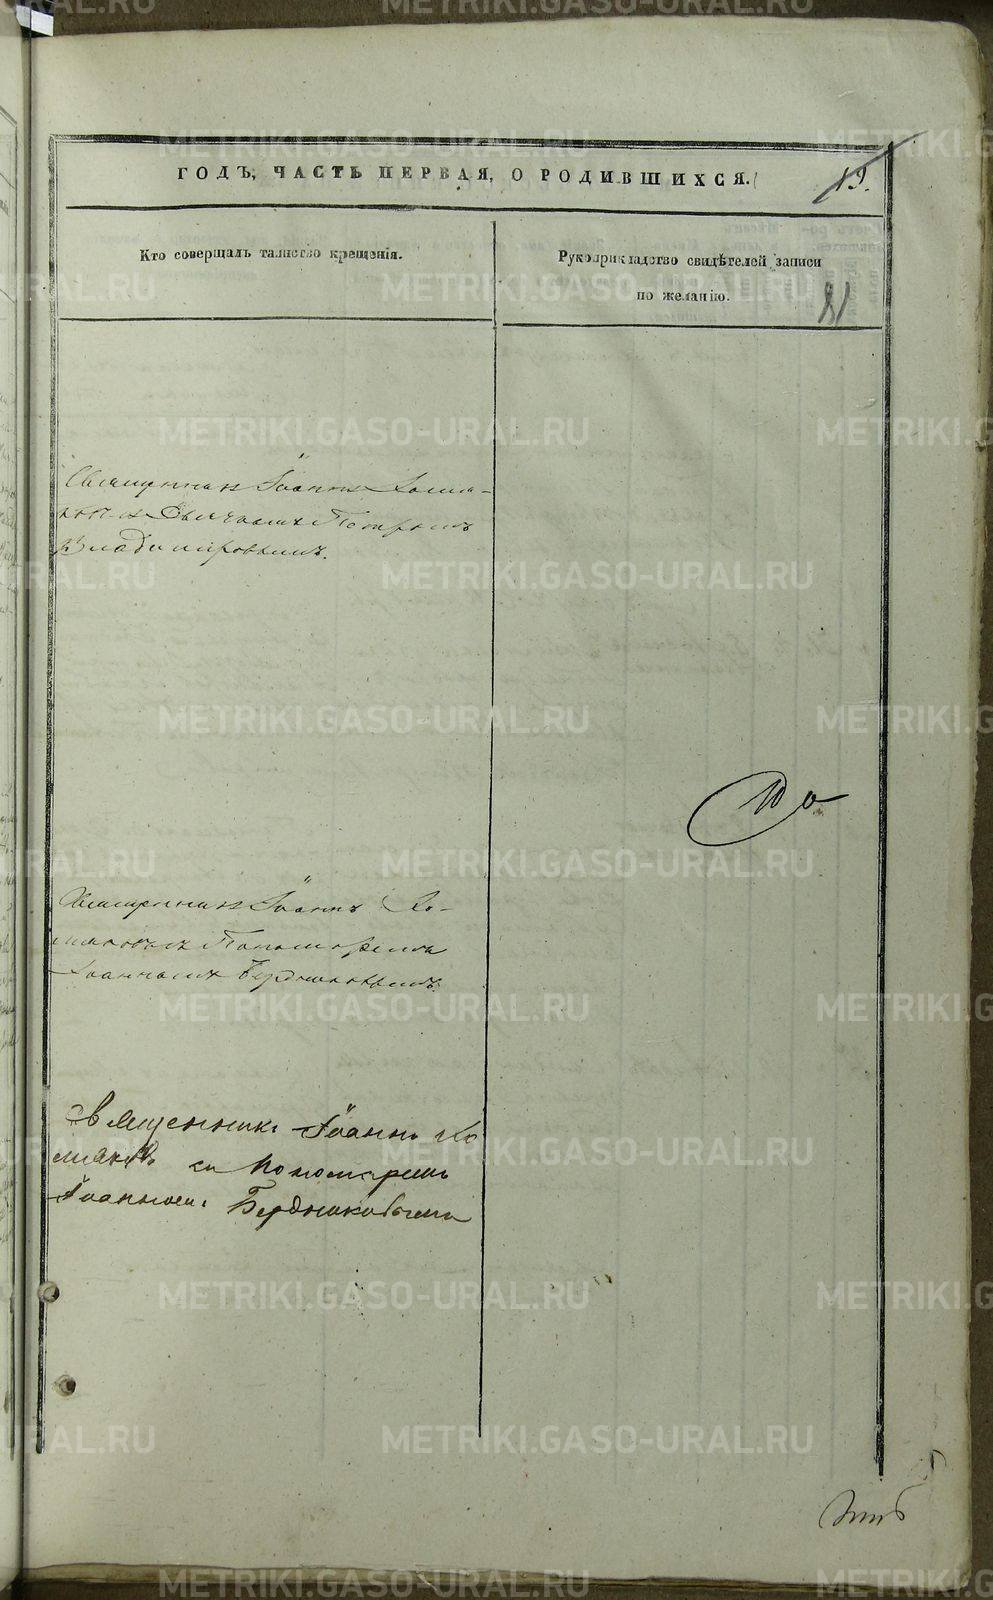 ГОДЪ, ЧАСТЬ ПЕРВАЯ, О РОДИВШИХСЯ.
19.
Кто совершалъ таинство крещенія.
Рукоприкладство свидѣтелей записи
по желанію.
81
Священникъ Іоаннъ Хомя-
ковъ съ Дьячкомъ Петромъ
Владимировымъ.
Священникъ Іоаннъ Хо-
мяковъ съ Пономаремъ
Іоанномъ Бердниковымъ.
Священникъ Іоаннъ Хо
мяковъ съ Пономаремъ
Іоанномъ Бердниковымъ
METRIKI.GASO-URAL.RU